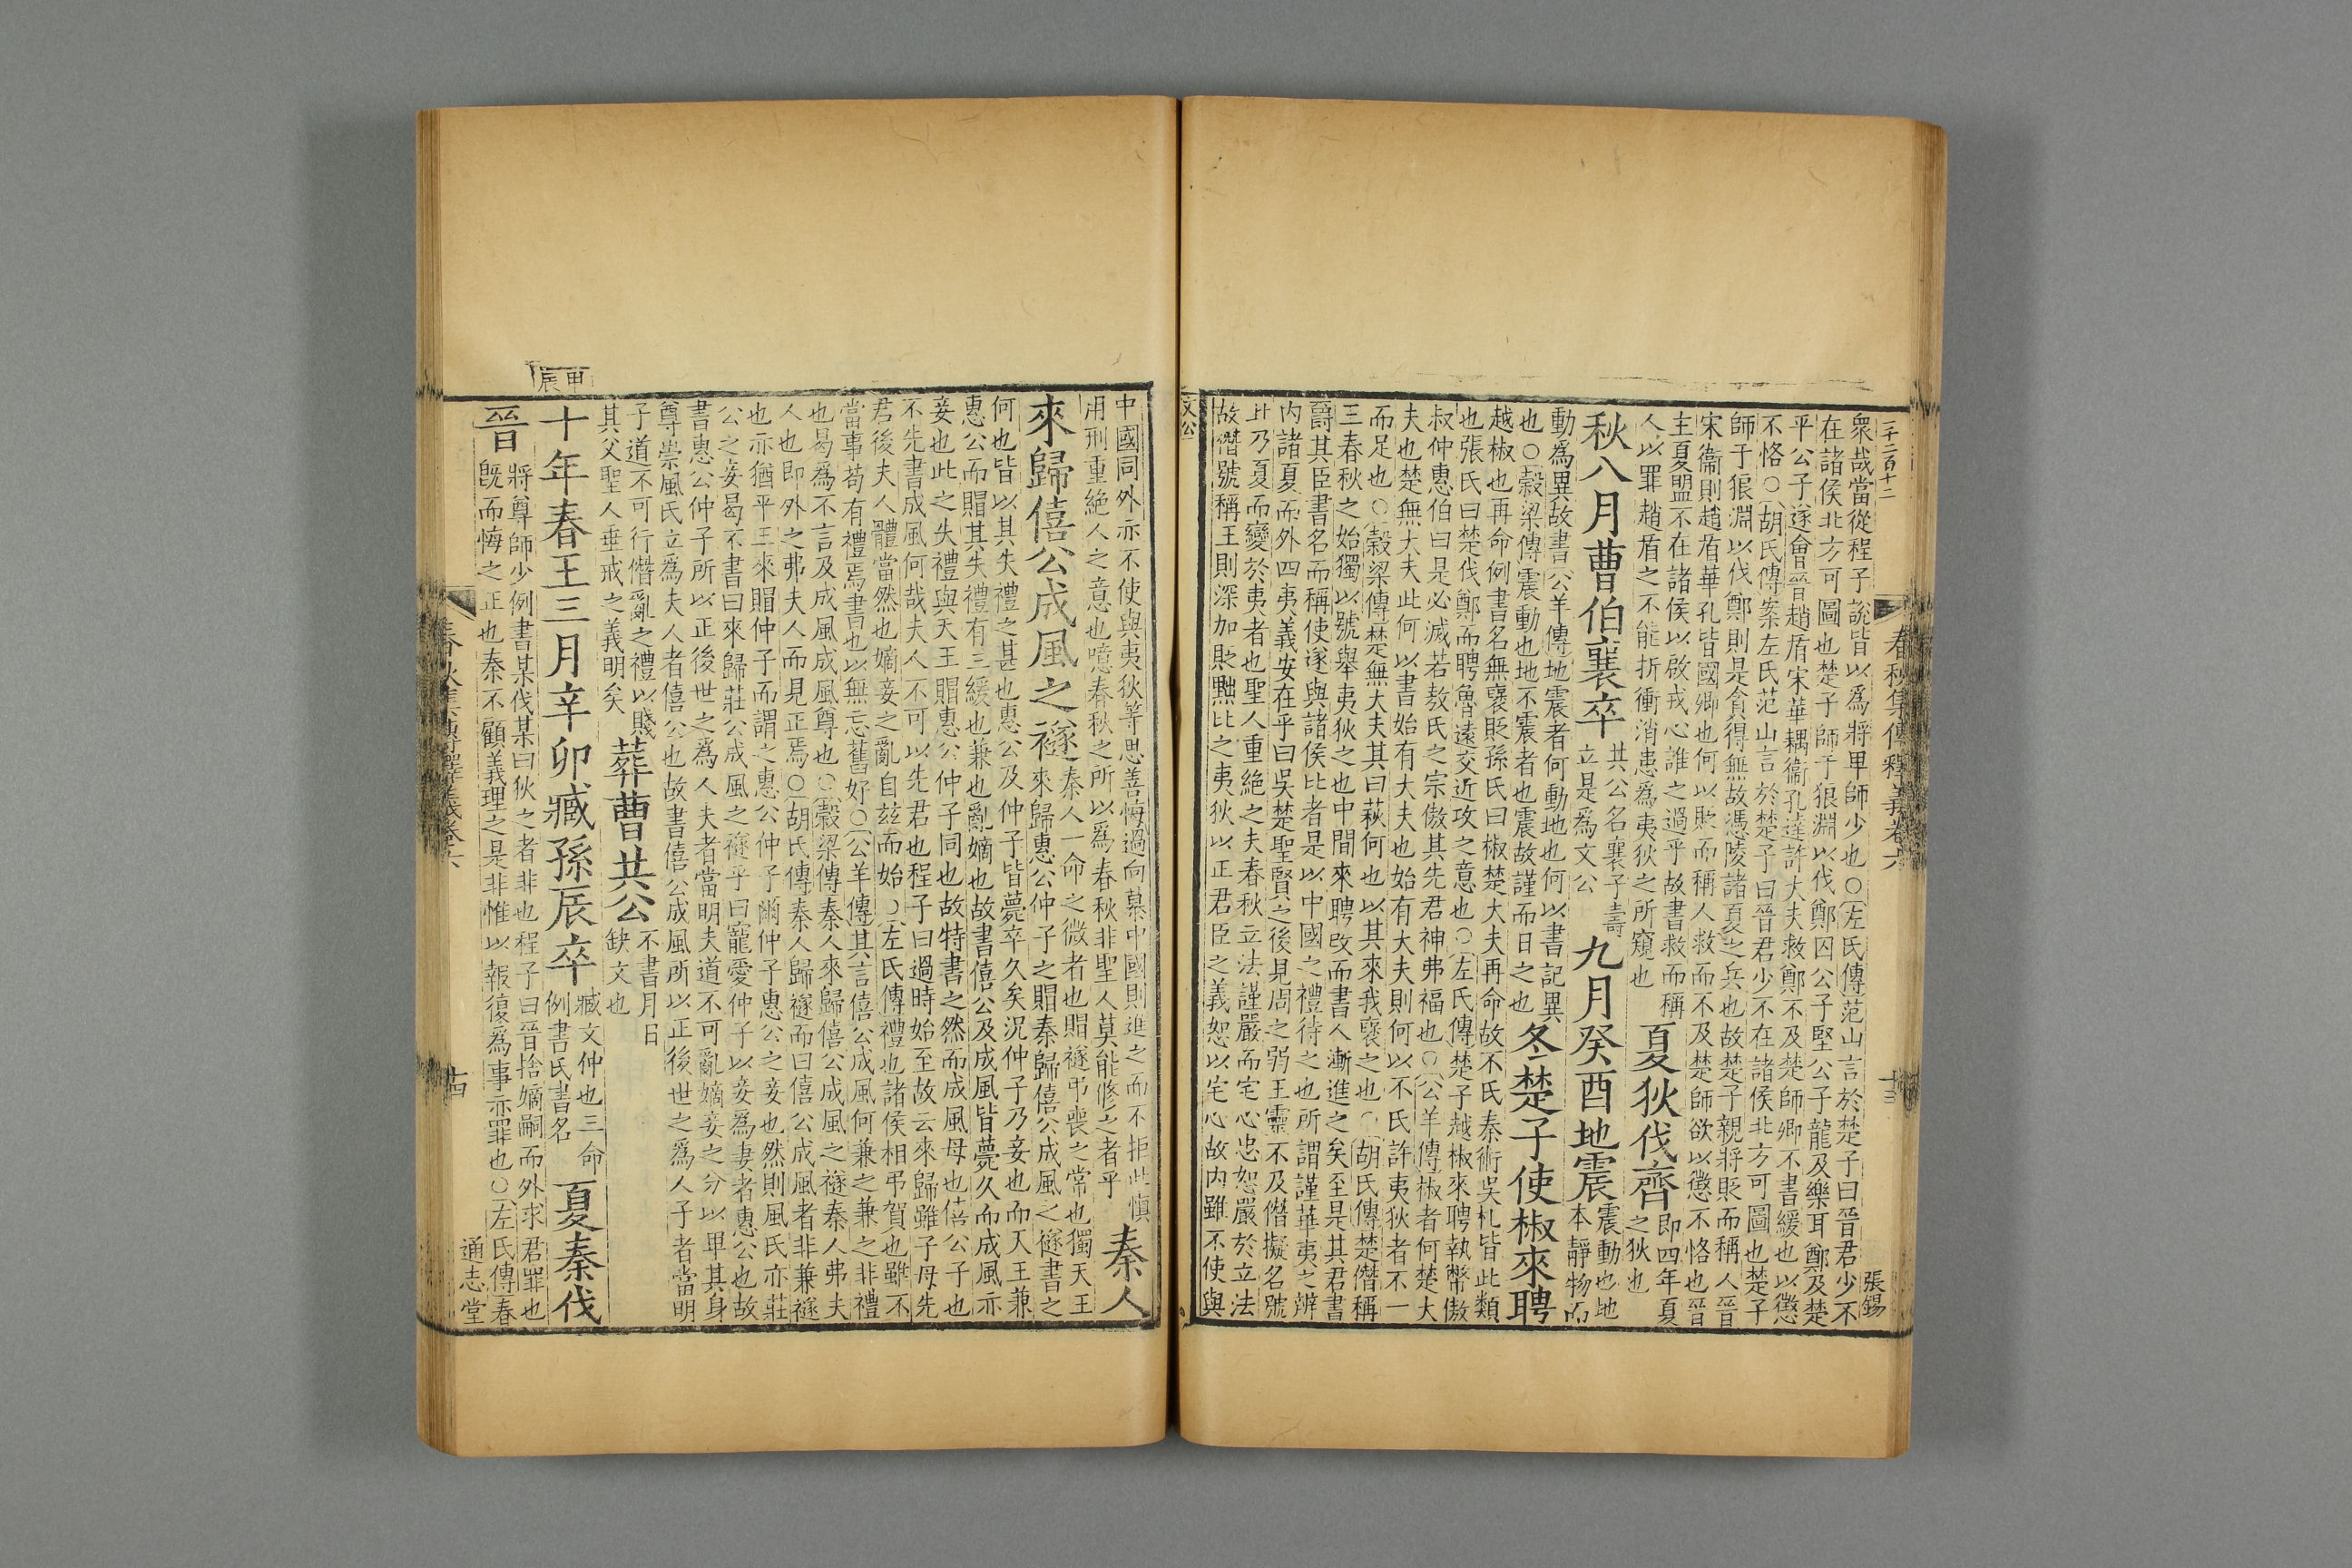 二千二百十二
春秋集傳釋義卷六
十三
張錫
衆哉當從程子說皆以為將甲師少也○左氏傳范山言於楚子曰晉君少不
在諸侯北方可圖也楚子師于狼淵以伐鄭囚公子堅公子龍及樂耳鄭及楚
平公子遂會晉趙盾宋華耦衞孔達許大夫救鄭不及楚師卿不書緩也以懲
不恪○胡氏傳案左氏范山言於楚子曰晉君少不在諸侯北方可圖也楚子
師于狼淵以伐鄭則是貪得無故馮陵諸夏之兵也故楚子親將貶而稱人晉
宋衞則趙盾華孔皆國卿也何以貶而稱人救而不及楚師欲以懲不恪也晉
主夏盟不在諸侯以啟戎心誰之過乎故書救而稱
人以罪趙盾之不能折衝消患為夷狄之所窺也
夏狄伐齊
即四年夏
之狄也
秋八月曹伯襄卒
共公名襄子壽
立是為文公
九月癸酉地震
震動也地
本靜物而
動為異故書公羊傳地震者何動地也何以書記異
也○穀梁傳震動也地不震者也震故謹而日之也
冬楚子使椒來聘
越椒也再命例書名無襃貶孫氏曰椒楚大夫再命故不氏秦術吳札皆此類
也張氏曰楚伐鄭而聘魯遠交近攻之意也○左氏傳楚子越椒來聘執幣傲
叔仲惠伯曰是必滅若敖氏之宗傲其先君神弗福也○公羊傳椒者何楚大
夫也楚無大夫此何以書始有大夫也始有大夫則何以不氏許夷狄者不一
而足也○穀梁傳楚無大夫其曰萩何也以其來我襃之也○胡氏傳楚僭稱
三春秋之始獨以號舉夷狄之也中間來聘改而書人漸進之矣至是其君書
爵其臣書名而稱使遂與諸侯比者是以中國之禮待之也所謂謹華夷之辨
內諸夏而外四夷義安在乎曰吳楚聖賢之後見周之弱王靈不及僭擬名號
此乃夏而變於夷者也聖人重絶之夫春秋立法謹嚴而宅心忠恕嚴於立法
故僭號稱王則深加貶黜比之夷狄以正君臣之義恕以宅心故内雖不使與
文公
中國同外亦不使與夷狄等思善悔過向慕中國則進之而不拒此慎
用刑重絶人之意也噫春秋之所以為春秋非聖人莫能修之者乎
秦人
來歸僖公成風之襚
秦人一命之微者也賵襚弔喪之常也獨天王
來歸惠公仲子之賵秦歸僖公成風之襚書之
何也皆以其失禮之甚也惠公及仲子皆薨卒久矣況仲子乃妾也而天王兼
惠公而賵其失禮有三緩也兼也亂嫡也故書僖公及成風皆薨久而成風亦
妾也此之失禮與天王賵惠公仲子同也故特書之然而成風母也僖公子也
不先書成風何哉夫人不可以先君也程子曰過時始至故云來歸雖子母先
君後夫人體當然也嫡妾之亂自兹而始○左氏傳禮也諸侯相弔賀也雖不
當事苟有禮焉書也以無忘舊好○公羊傳其言僖公成風何兼之兼之非禮
也曷為不言及成風成風尊也○穀梁傳秦人來歸僖公成風之襚秦人弗夫
人也即外之弗夫人而見正焉○胡氏傳秦人歸襚而曰僖公成風者非兼襚
也亦猶平王來賵仲子而謂之惠公仲子爾仲子惠公之妾也然則風氏亦莊
公之妾曷不書曰來歸莊公成風之襚乎曰寵愛仲子以妾為妻者惠公也故
書惠公仲子所以正後世之為人夫者當明夫道不可亂嫡妾之分以卑其身
尊崇風氏立為夫人者僖公也故書僖公成風所以正後世之為人子者當明
子道不可行僭亂之禮以賤
其父聖人垂戒之義明矣
葬曹共公
不書月日
缺文也
甲辰
十年春王三月辛卯臧孫辰卒
臧文仲也三命
例書氏書名
夏秦伐
晉
將尊師少例書某伐某曰狄之者非也程子曰晉捨嫡嗣而外求君罪也
既而悔之正也秦不顧義理之是非惟以報復為事亦罪也○左氏傳春
春秋集傳釋義卷六
十四
通志堂